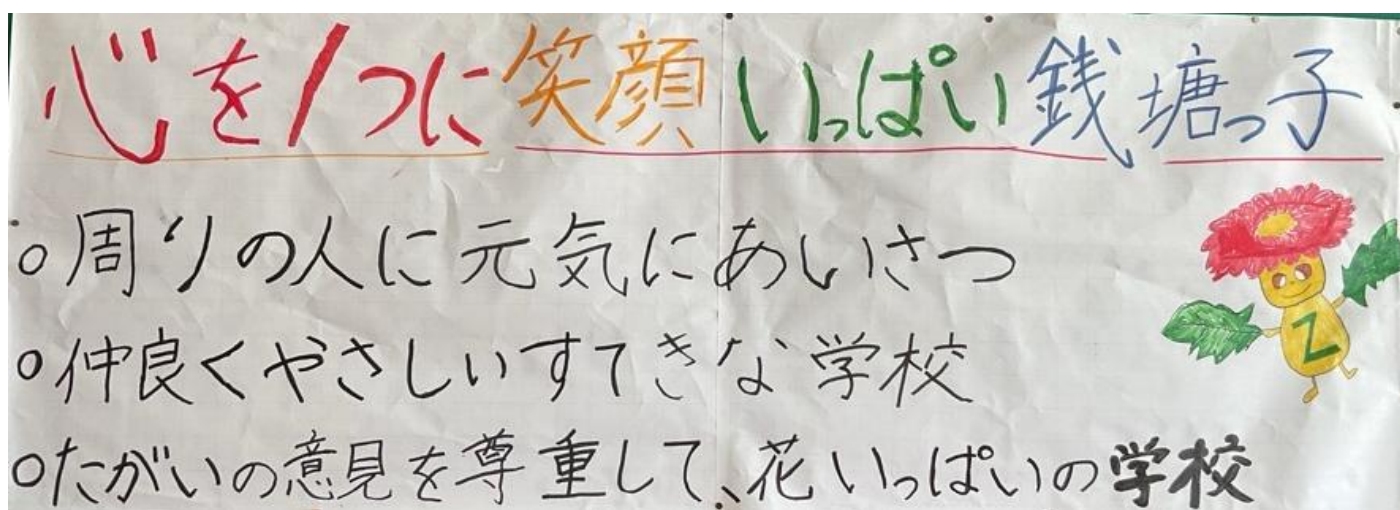 心を1つに笑顔いっぱい銭塘っ子
○周りの人に元気にあいさつ
○仲良くやさしいすてきな学校
○たがいの意見を尊重して、花いっぱいの学校
Z